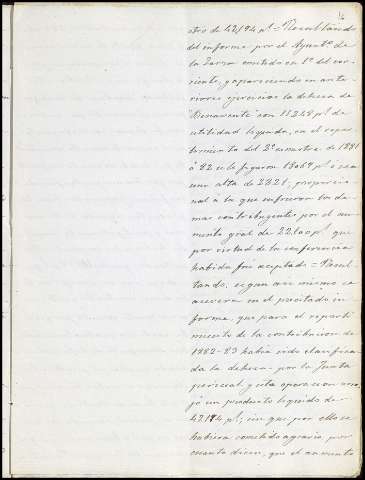 otro de 42194 pts = Resultando
del informe por el Ayuntº de
la Zarza emitido en 1º del cor-
riente, y apareciendo en ante-
riores ejercicios la dehesa de
Benavente con 11.248 pts de
utilidad líquida, en el repar-
timiento del 2º semestre de 1881
á 82 se le figuraron 13.069 pts ó sea
una alta de 2821, proporcio-
nal á la que sufrieron los de-
mas contribuyentes por el au-
mento gral de 22.600 pts que
por virtud de la conferencia
habida fué aceptado = Resul-
tando, segun asi mismo se
asevera en el precitado in-
forme, que para el reparti-
miento de la contribucion de
1882-83 habia sido clasifica-
da la dehesa por la Junta
pericial y esta operacion arro-
jó un producto líquido de
42.194 pts; sin que por ello se
hubiera cometido agravio, por
cuanto dicen, que el aumento